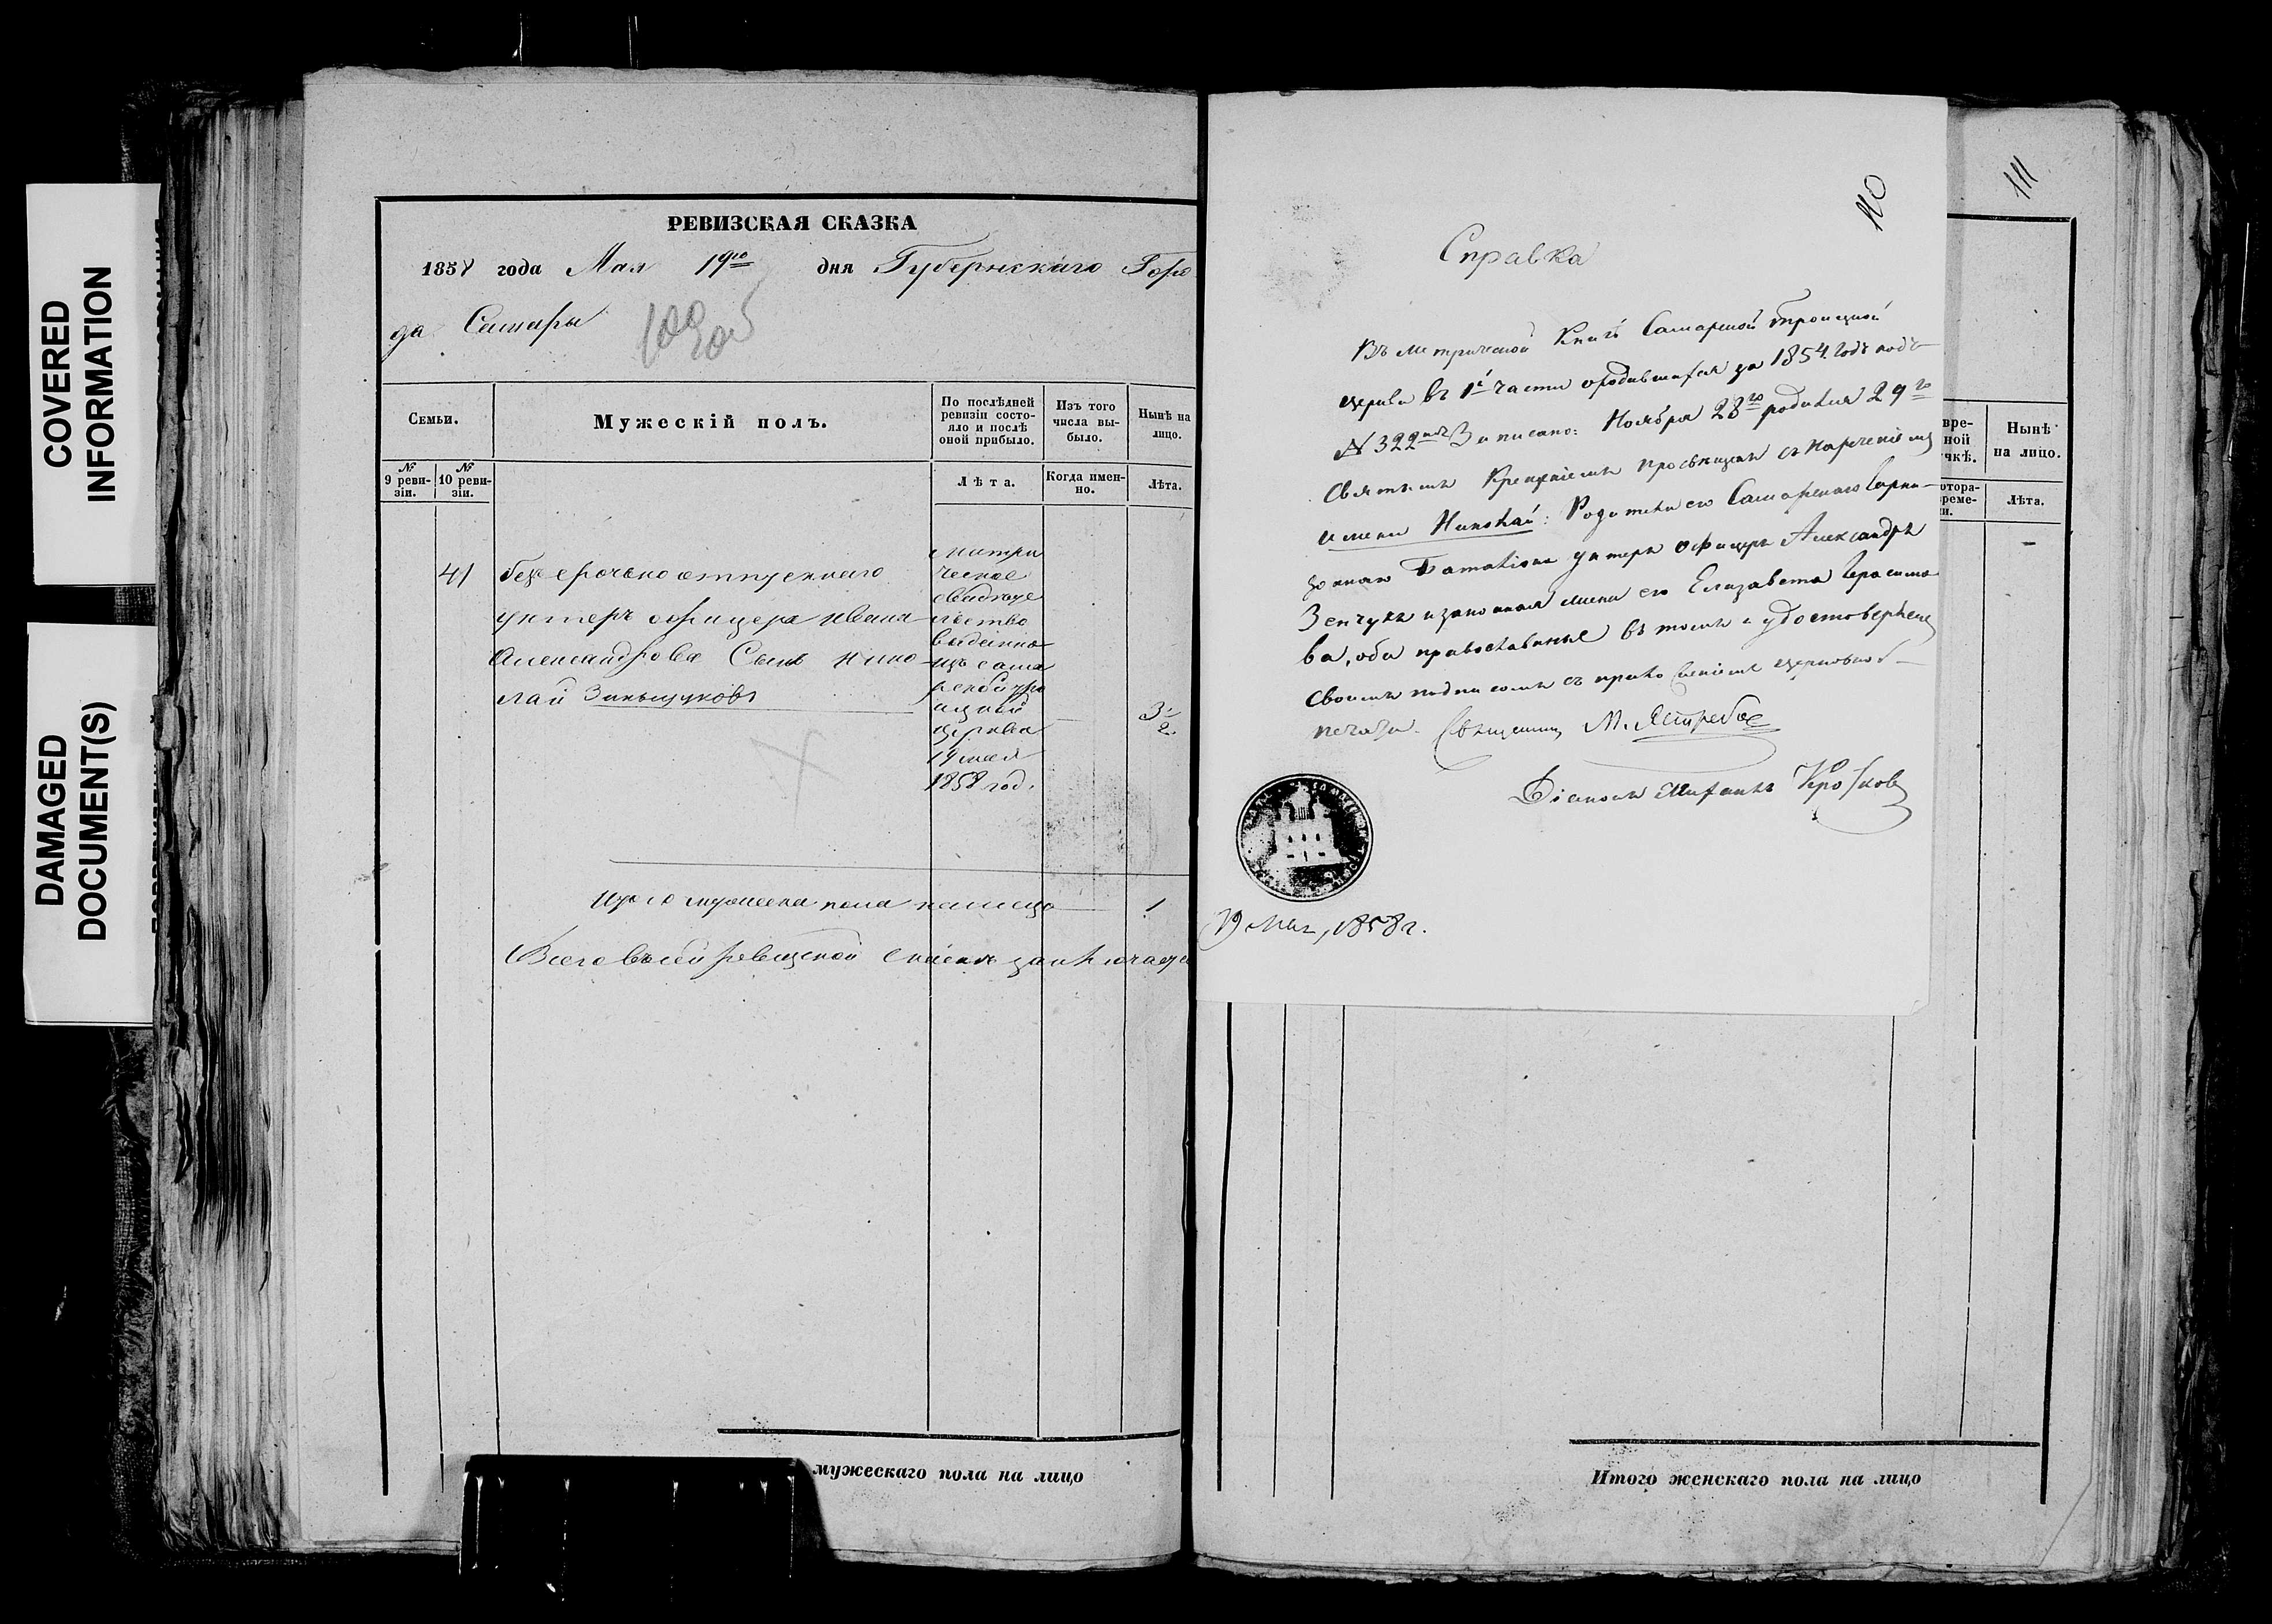 COVERED
INFORMATION
DAMAGED
DOCUMENT(S)
РЕВИЗСКАЯ СКАЗКА
1858 года Мая 19го дня Губернскаго Горо
да Самары
Семьи.
Мужескій полъ.
По послѣдней
ревизіи состо-
яло и послѣ
оной прибыло.
Изъ того
числа вы-
было.
Нынѣ на
лицо.
№
9 реви-
зіи.
№
10 реви-
зіи.
Лѣта.
Когда имен-
но.
Лѣта.
41
безсрочно отпускнаго
унтеръ офицера Ивана
Александрова Сынъ Нико
лай Зиньщуковъ
метри
ческое
свидѣте
льство
выданно
изъ сама
рской тро
ицкой
церкви
19 мая
1858 год.
3 1/2
Итого мужеска пола налицо 1
Всего въ сей ревизской сказкѣ заключается
мужескаго пола на лицо
110
Справка
Въ метрической Книгѣ Самарской Троицкой
церкви въ 1й части о родившихся за 1854. годъ подъ
№ 322мъ Записано: Ноября 28го родился 29го
Святымъ Крещеніемъ просвѣщенъ съ нареченіемъ
имени Николай: Родители его Самарскаго Гарни-
зоннаго Баталіона унтеръ офицеръ Александръ
Зенчукъ и законная жена его Елизавета Герасимо
ва, оба православные въ томъ и удостовѣряемъ
своимъ подписомъ съ приложеніемъ церковной
печати. Священник М. Ястребов
Діаконъ Кротков
19 Мая, 1858 г.
111
вре-
ной
чкѣ.
Нынѣ
на лицо.
отора-
време-
и.
Лѣта.
Итого женскаго пола на лицо